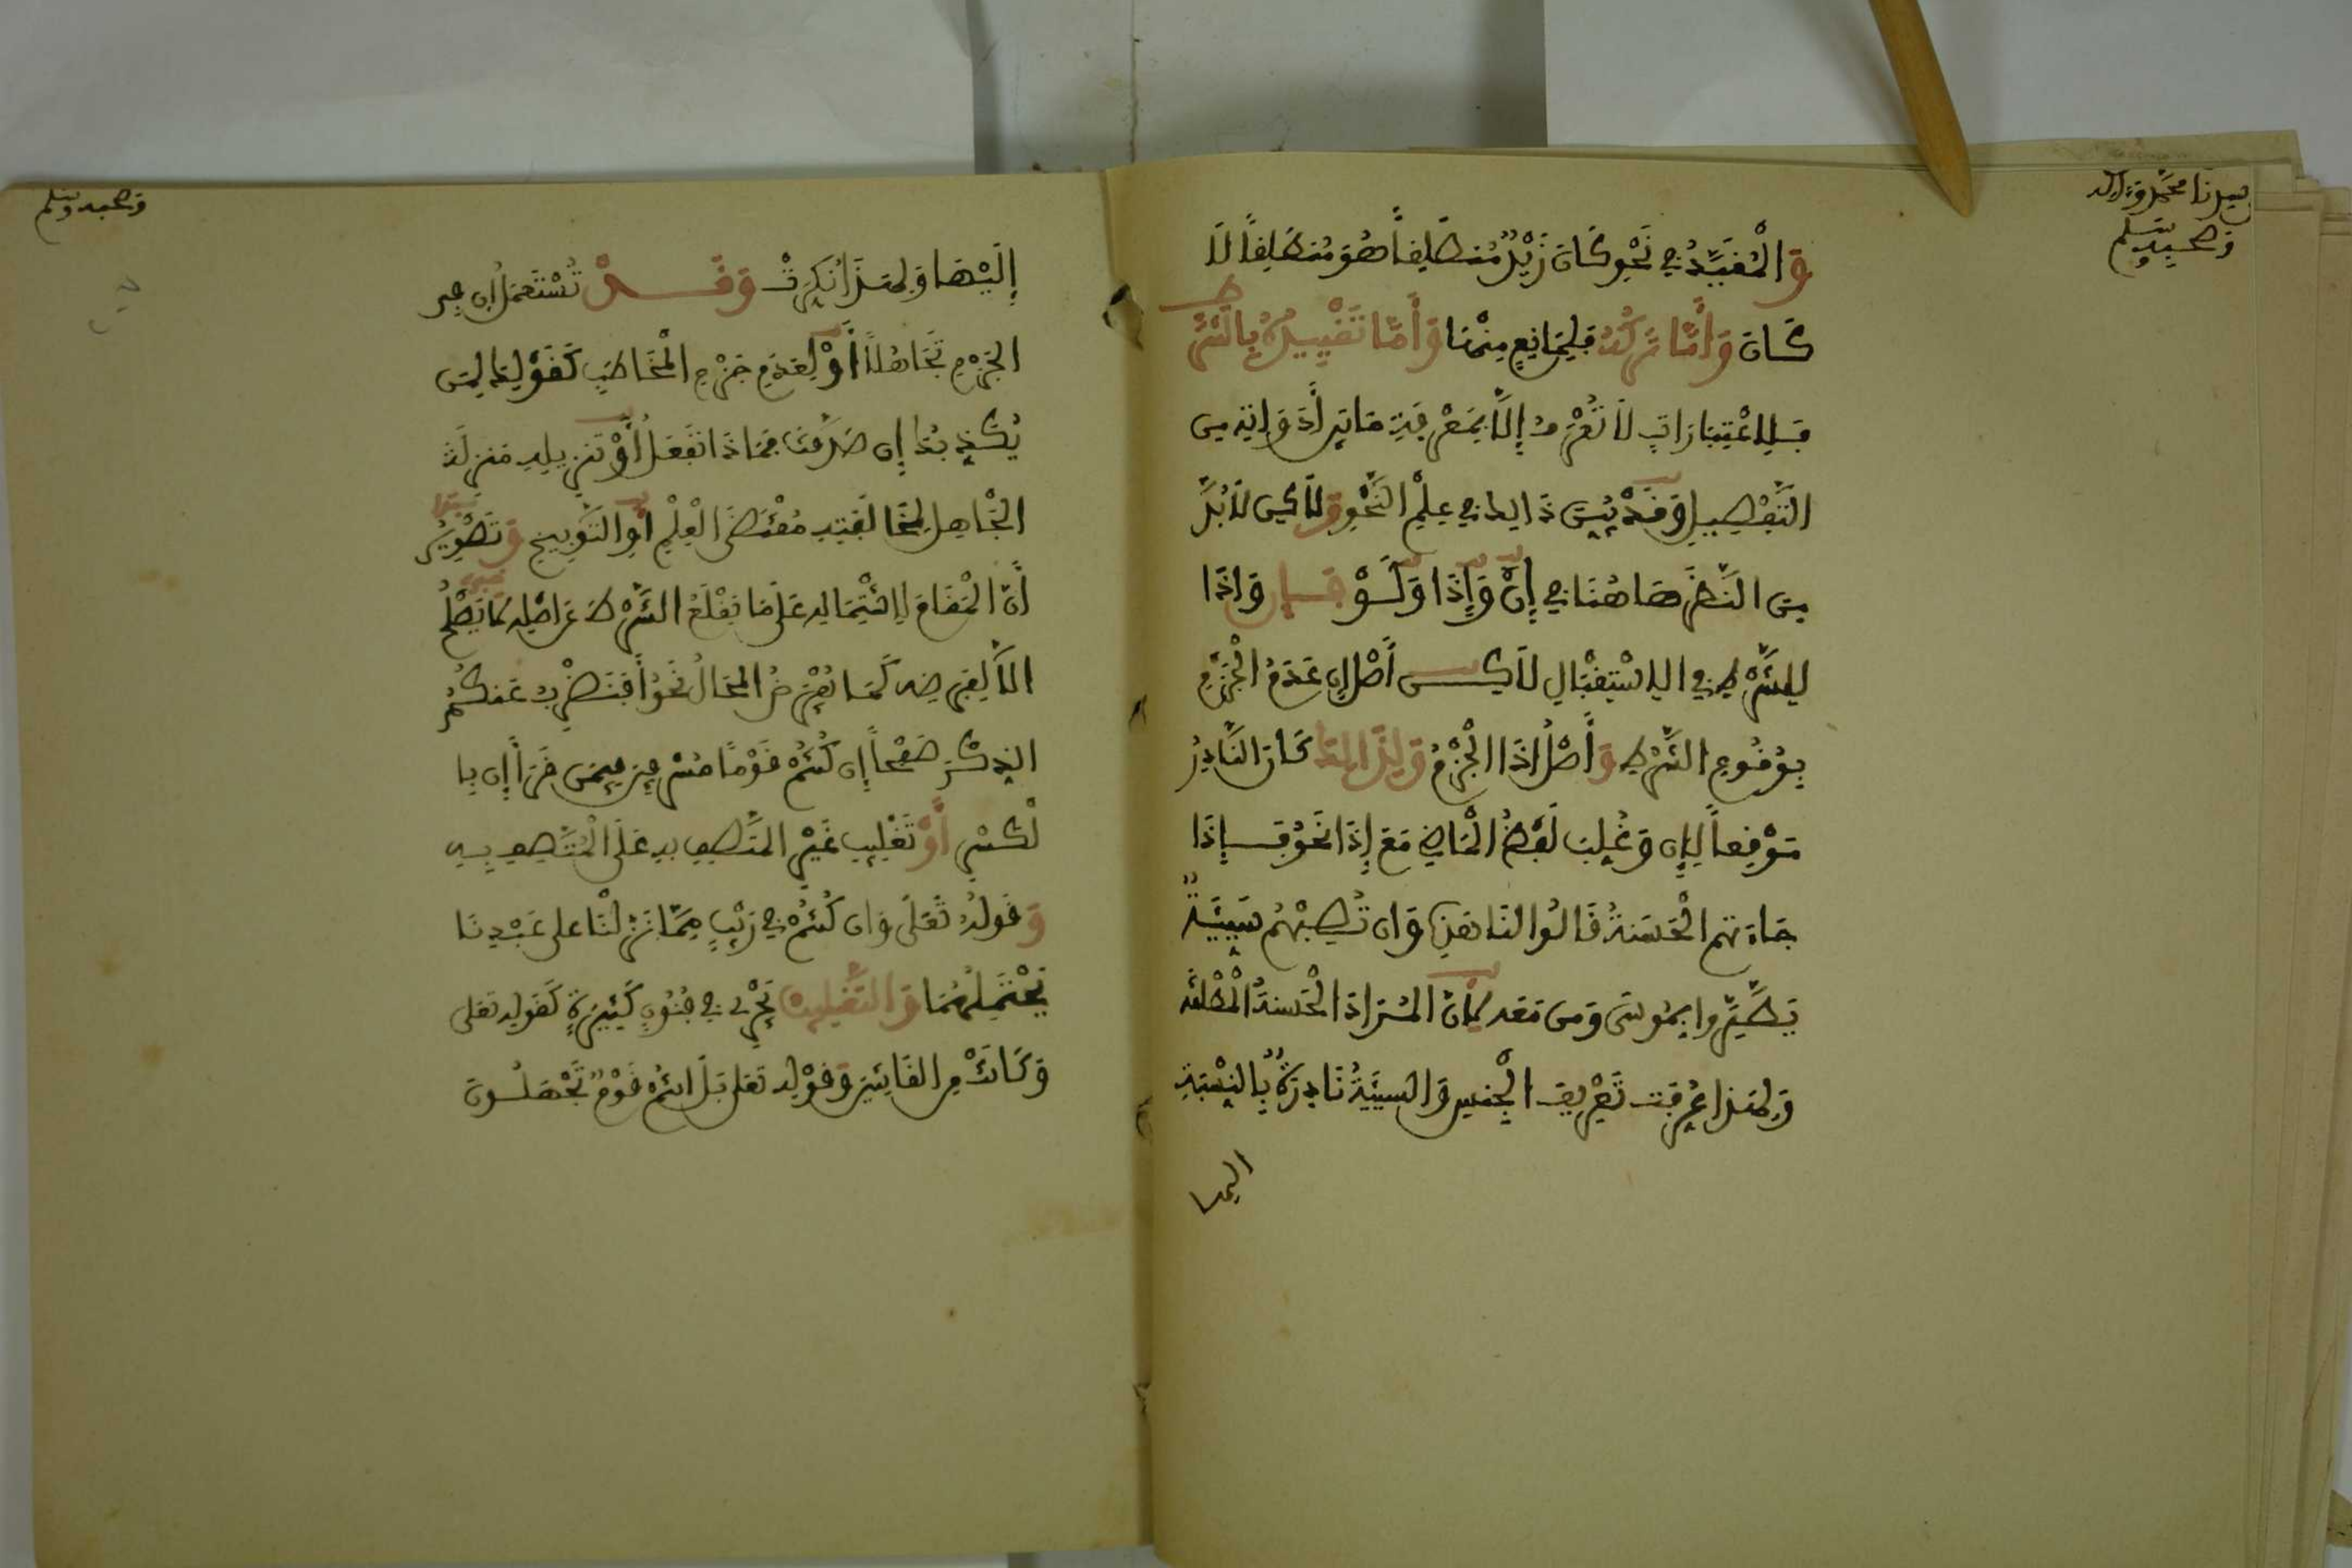 سيدنا محمد وءاله
وصحبه وسلم
وَالْمُقَيَّدُ فِي نَحْوِ كَانَ زَيْدٌ مُنطَلِقاً هُوَ مُنطَلِقاً لَا
كَانَ وَأَمَّا تَرْكُهُ فَلِمَانِعٍ مِنْهَا وَأَمَّا تَقْيِيدُهُ بِالشَّرْطِ
فَلِاعْتِبَارَاتٍ لَا تُعْرَفُ إِلَّا بِمَعْرِفَةِ مَا بَيْنَ أَدَوَاتِهِ مِن
التَّفْصِيلِ وَقَدْ بُيِّنَ ذَالِكَ فِي عِلْمِ النَّحْوِ وَلَاكِن لَابُدَّ
مِنَ النَّظَرِ هَاهُنَا فِي إِنْ وَإِذَا وَلَوْ فَإِن وَإِذَا
لِلشَّرْطِ فِي الِاسْتِقْبَالِ لَاكِن أَصْلُ إِن عَدَمُ الْجَزْمِ
بِوُقُوعِ الشَّرْطِ وَأَصْلُ إِذَا الْجَزْمُ وَلِذَالِكَ كَانَ النَّادِرُ
مَوْقِعاً لِإِن وَغُلِبَ لَفْظُ الْمَاضِي مَعَ إِذَا نَحْوُ فَإِذَا
جَاءَتْهُمُ الْحَسَنَةُ قَالُوا لَنَا هَذِهِ وَإِن تُصِبْهُمْ سَيِّئَةٌ
يَطَّيَّرُوا بِمُوسَى وَمَن مَعَهُ لِأَنَّ الْمُرَادَ الْحَسَنَةُ الْمُطْلَقَة
وَلِهَذَا عُرِّفَت تَعْرِيفَ الْجِنسِ وَالسَّيِّئَةُ نَادِرَةٌ بِالنِّسْبَةِ
إليها
وصحبه وسلم
إِلَيْهَا وَلِهَذَا نُكِّرَتْ وَقَدْ تُسْتَعْمَلُ إِن فِي
الْجَزْمِ تَجَاهُلاً أَوْ لِعَدَمِ جَزْمِ الْمُخَاطَبِ كَقَوْلِكَ لِمَن
يُكَذِّبُكَ إِن صَدَقْتُ فَمَاذَا تَفْعَلُ أَوْ تَنزِيلِهِ مَنزِلَةَ
الْجَاهِلِ لِمُخَالَفَتِهِ مُقْتَضَى الْعِلْمِ أَوِ التَّوْبِيخِ وَتَصْوِيرِ
أَنَّ الْمَقَامَ لِاشْتِمَالِهِ عَلَى مَا يَقْلَعُ الشَّرْطَ عَن أَصْلِهِ لَا يَصْلُحُ
إِلَّا لِفَرْضِهِ كَمَا يُفْرَضُ الْمُحَالُ نَحْوُ أَفَنَضْرِبُ عَنكُمُ
الذِّكْرَ صَفْحاً إِن كُنتُمْ قَوْماً مُسْرِفِينَ فِيمَن قَرَأَ إِن بِا
لْكَسْرِ أَوْ تَغْلِيبِ غَيْرِ الْمُتَّصِفِ بِهِ عَلَى الْمُتَّصِفِ بِهِ
وَقَوْلُهُ تَعَلَى وَإِن كُنتُمْ فِي رَيْبٍ مِمَّا نَزَّلْنَا عَلَى عَبْدِنَا
يَحْتَمِلُهُمَا وَالتَّغْلِيبُ يَجْرِي فِي فُنُونٍ كَثِيرَةٍ كَقَوْلِهِ تَعَلَى
وَكَانَتْ مِنَ الْقَانِتِينَ وَقَوْلِهِ تَعَلَى بَلْ أَنتُمْ قَوْمٌ تَجْهَلُونَ